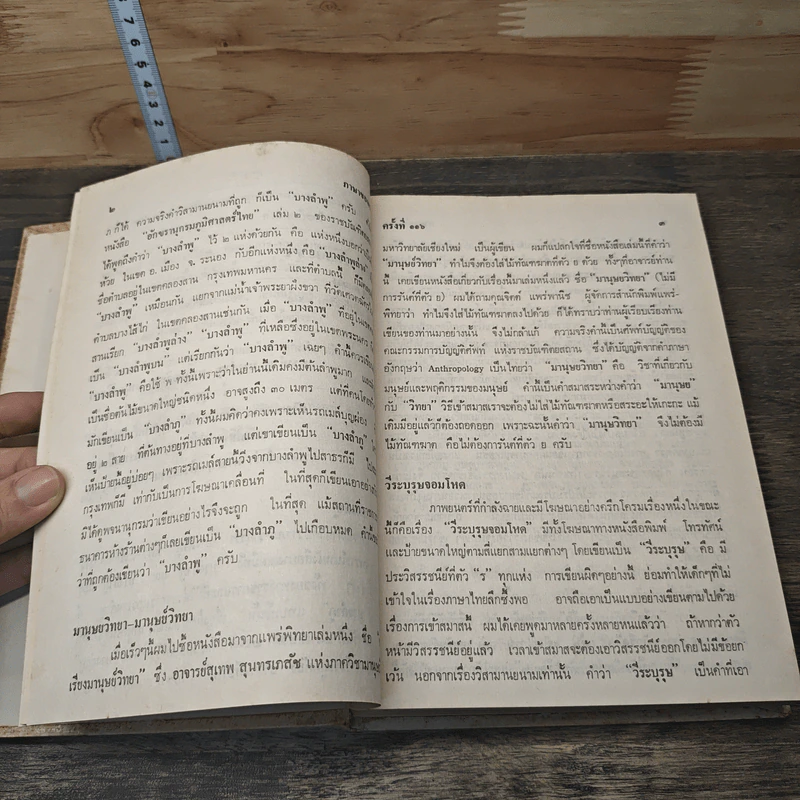 ๒
ภ ก็ได้ ความจริงคำวิสามานยนามที่ถูก ก็เป็น "บางลำพู" ครับ
หนังสือ "อักขรานุกรมภูมิศาสตร์ไทย" เล่ม ๒ ของราชบัณฑิต
ได้พูดถึงคำว่า "บางลำพู" ไว้ ๒ แห่งด้วยกัน คือ แห่งหนึ่งบอกว่าเป็น
ห้วย ในเขต อ. เมือง จ. ระนอง กับอีกแห่งหนึ่ง คือ "บางลำพูล่าง"
ชื่อตำบลอยู่ในเขตคลองสาน กรุงเทพมหานคร และที่ตำบลนี้ ก็มี
"บางลำพู" เหมือนกัน แยกจากแม่น้ำเจ้าพระยาฝั่งขวา ที่วัด
ตำบลบางไส้ไก่ ในเขตคลองสานเช่นกัน เมื่อ "บางลำพู" ที่อยู่ในเขต
สานเรียก "บางลำพูล่าง" "บางลำพู" ที่เหลือซึ่งอยู่ในเขตพระนคร
เป็น "บางลำพูบน" แต่เรียกกันว่า "บางลำพู" เฉยๆ คำนี้ควร
"บางลำพู" คือใช้ พ ทั้งนี้เพราะว่าในย่านนี้เดิมคงมีต้นลำพูมาก
เป็นชื่อต้นไม้ขนาดใหญ่ชนิดหนึ่ง อาจสูงถึง ๓๐ เมตร แต่ที่คน
มักเขียนเป็น "บางลำภู" ทั้งนี้ผมคิดว่าคงเพราะเห็นรถเมล์บุญผ่อง
อยู่ ๒ สาย ที่ต้นทางอยู่ที่บางลำพู แต่เขาเขียนเป็น "บางลำภู"
เห็นป้ายนี้อยู่บ่อยๆ เพราะรถเมล์สายนี้วิ่งจากบางลำพูไปสาธรก็มี
กรุงเทพก็มี เท่ากับเป็นการโฆษณาเคลื่อนที่ ในที่สุดก็เขียนเอาอย่าง
มิได้ดูพจนานุกรมว่าเขียนอย่างไรจึงจะถูก ในที่สุด แม้สถานที่ราช
ธนาคารห้างร้านต่างๆก็เลยเขียนเป็น "บางลำภู" ไปเกือบหมด คำนี้
ว่าที่ถูกต้องเขียนว่า "บางลำพู" ครับ
มานุษยวิทยา-มานุษย์วิทยา
เมื่อเร็วๆนี้ผมไปซื้อหนังสือมาจากแพร่พิทยาเล่มหนึ่ง ชื่อ
เรียงมานุษย์วิทยา" ซึ่ง อาจารย์สุเทพ สุนทรเภสัช แห่งภาควิชามานุษ
ครั้งที่ ๑๑๖ ๓
มหาวิทยาลัยเชียงใหม่ เป็นผู้เขียน ผมก็แปลกใจที่ชื่อหนังสือเล่มนี้ที่คำว่า
"มานุษย์วิทยา" ทำไมจึงต้องใส่ไม้ทัณฑฆาตที่ตัว ย ด้วย ทั้งๆที่อาจารย์ท่าน
นี้ เคยเขียนหนังสือเกี่ยวกับเรื่องนี้มาเล่มหนึ่งแล้ว ชื่อ "มานุษยวิทยา" (ไม่มี
การรันต์ที่ตัว ย) ผมได้ถามคุณจิตต์ แพร่พานิช ผู้จัดการสำนักพิมพ์แพร่-
พิทยาว่า ทำไมจึงใส่ไม้ทัณฑฆาตลงไปด้วย ก็ได้ทราบว่าท่านผู้เรียบเรียงท่าน
เขียนของท่านมาอย่างนั้น จึงไม่กล้าแก้ ความจริงคำนี้เป็นศัพท์บัญญัติของ
คณะกรรมการบัญญัติศัพท์ แห่งราชบัณฑิตยสถาน ซึ่งได้บัญญัติจากคำภาษา
อังกฤษว่า Anthropology เป็นไทยว่า "มานุษยวิทยา" คือ วิชาที่เกี่ยวกับ
มนุษย์และพฤติกรรมของมนุษย์ คำนี้เป็นคำสมาสระหว่างคำว่า "มานุษย"
กับ "วิทยา" วิธีเข้าสมาสเราจะต้องไม่ใส่ไม้ทัณฑฆาตหรือสระอะให้เกะกะ แม้
เดิมมีอยู่แล้วก็ต้องถอดออก เพราะฉะนั้นคำว่า "มานุษยวิทยา" จึงไม่ต้องมี
ไม้ทัณฑฆาต คือไม่ต้องการันต์ที่ตัว ย ครับ
วีระบุรุษจอมโหด
ภาพยนตร์ที่กำลังฉายและมีโฆษณาอย่างครึกโครมเรื่องหนึ่งในขณะ
นี้ก็คือเรื่อง "วีระบุรุษจอมโหด" มีทั้งโฆษณาทางหนังสือพิมพ์ โทรทัศน์
และป้ายขนาดใหญ่ตามสี่แยกสามแยกต่างๆ โดยเขียนเป็น "วีระบุรุษ" คือ มี
ประวิสรรชนีย์ที่ตัว "ร" ทุกแห่ง การเขียนผิดๆอย่างนี้ ย่อมทำให้เด็กๆที่ไม่
เข้าใจในเรื่องภาษาไทยลึกซึ้งพอ อาจถือเอาเป็นแบบอย่างเขียนตามไปด้วย
เรื่องการเข้าสมาสนี้ ผมได้เคยพูดมาหลายครั้งหลายหนแล้วว่า ถ้าหากว่าตัว
หน้ามีวิสรรชนีย์อยู่แล้ว เวลาเข้าสมาสจะต้องเอาวิสรรชนีย์ออกโดยไม่มีข้อยก
เว้น นอกจากเรื่องวิสามานยนามเท่านั้น คำว่า "วีระบุรุษ" เป็นคำที่เอา
7
6
5
4
3
2
1